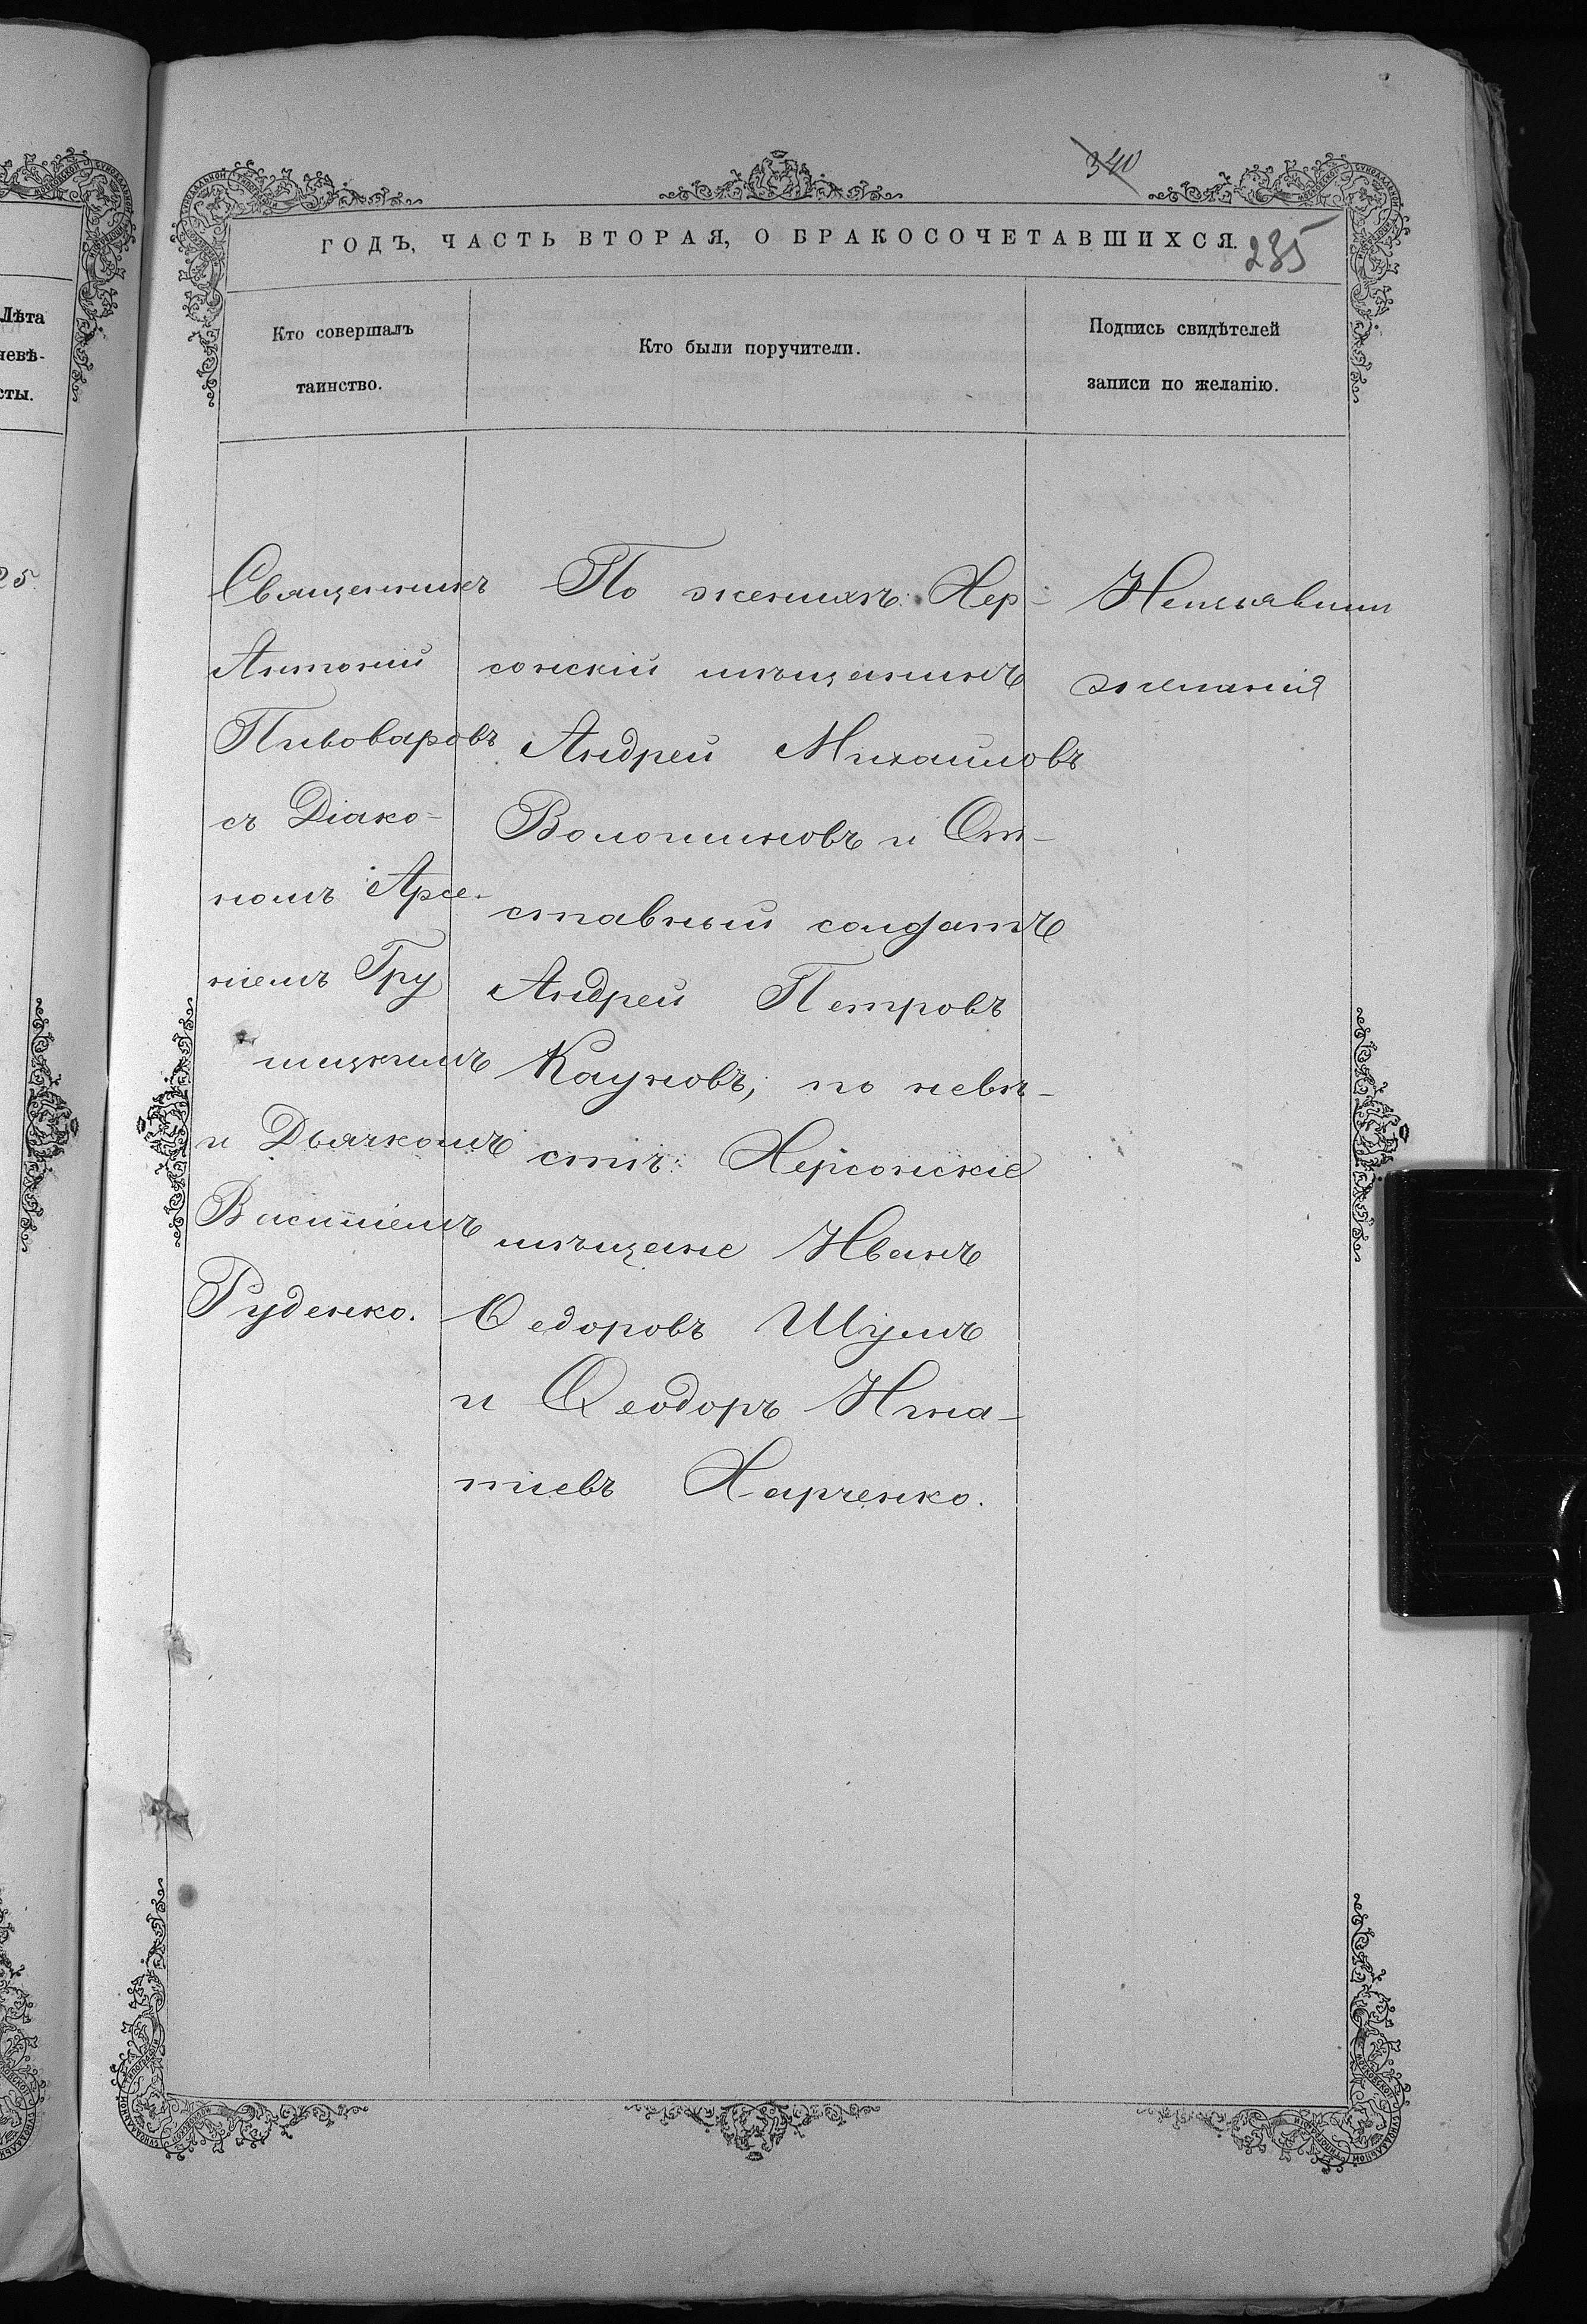 340
ГОДЪ, ЧАСТЬ ВТОРАЯ, О БРАКОСОЧЕТАВШИХСЯ.
235
Лѣта
невѣ-
сты.
25
Кто совершалъ
таинство.
Кто были поручители.
Подпись свидѣтелей
записи по желанію.
Священникъ
Антоній
Пивоваровъ
съ Діако-
номъ Арсе-
ніемъ Гру
шицкимъ
и Дьячкомъ
Василіемъ
Руденко.
По женихѣ: Хер-
сонскій мѣщанинъ
Андрей Михаиловъ
Волошиновъ и От-
ставный солдатъ
Андрей Петровъ
Кауновъ, по невѣ-
стѣ: Херсонскіе
мѣщане Иванъ
Ѳедоровъ Шумъ
и Ѳеодоръ Игна-
тіевъ Харченко.
Неизъявили
желанія